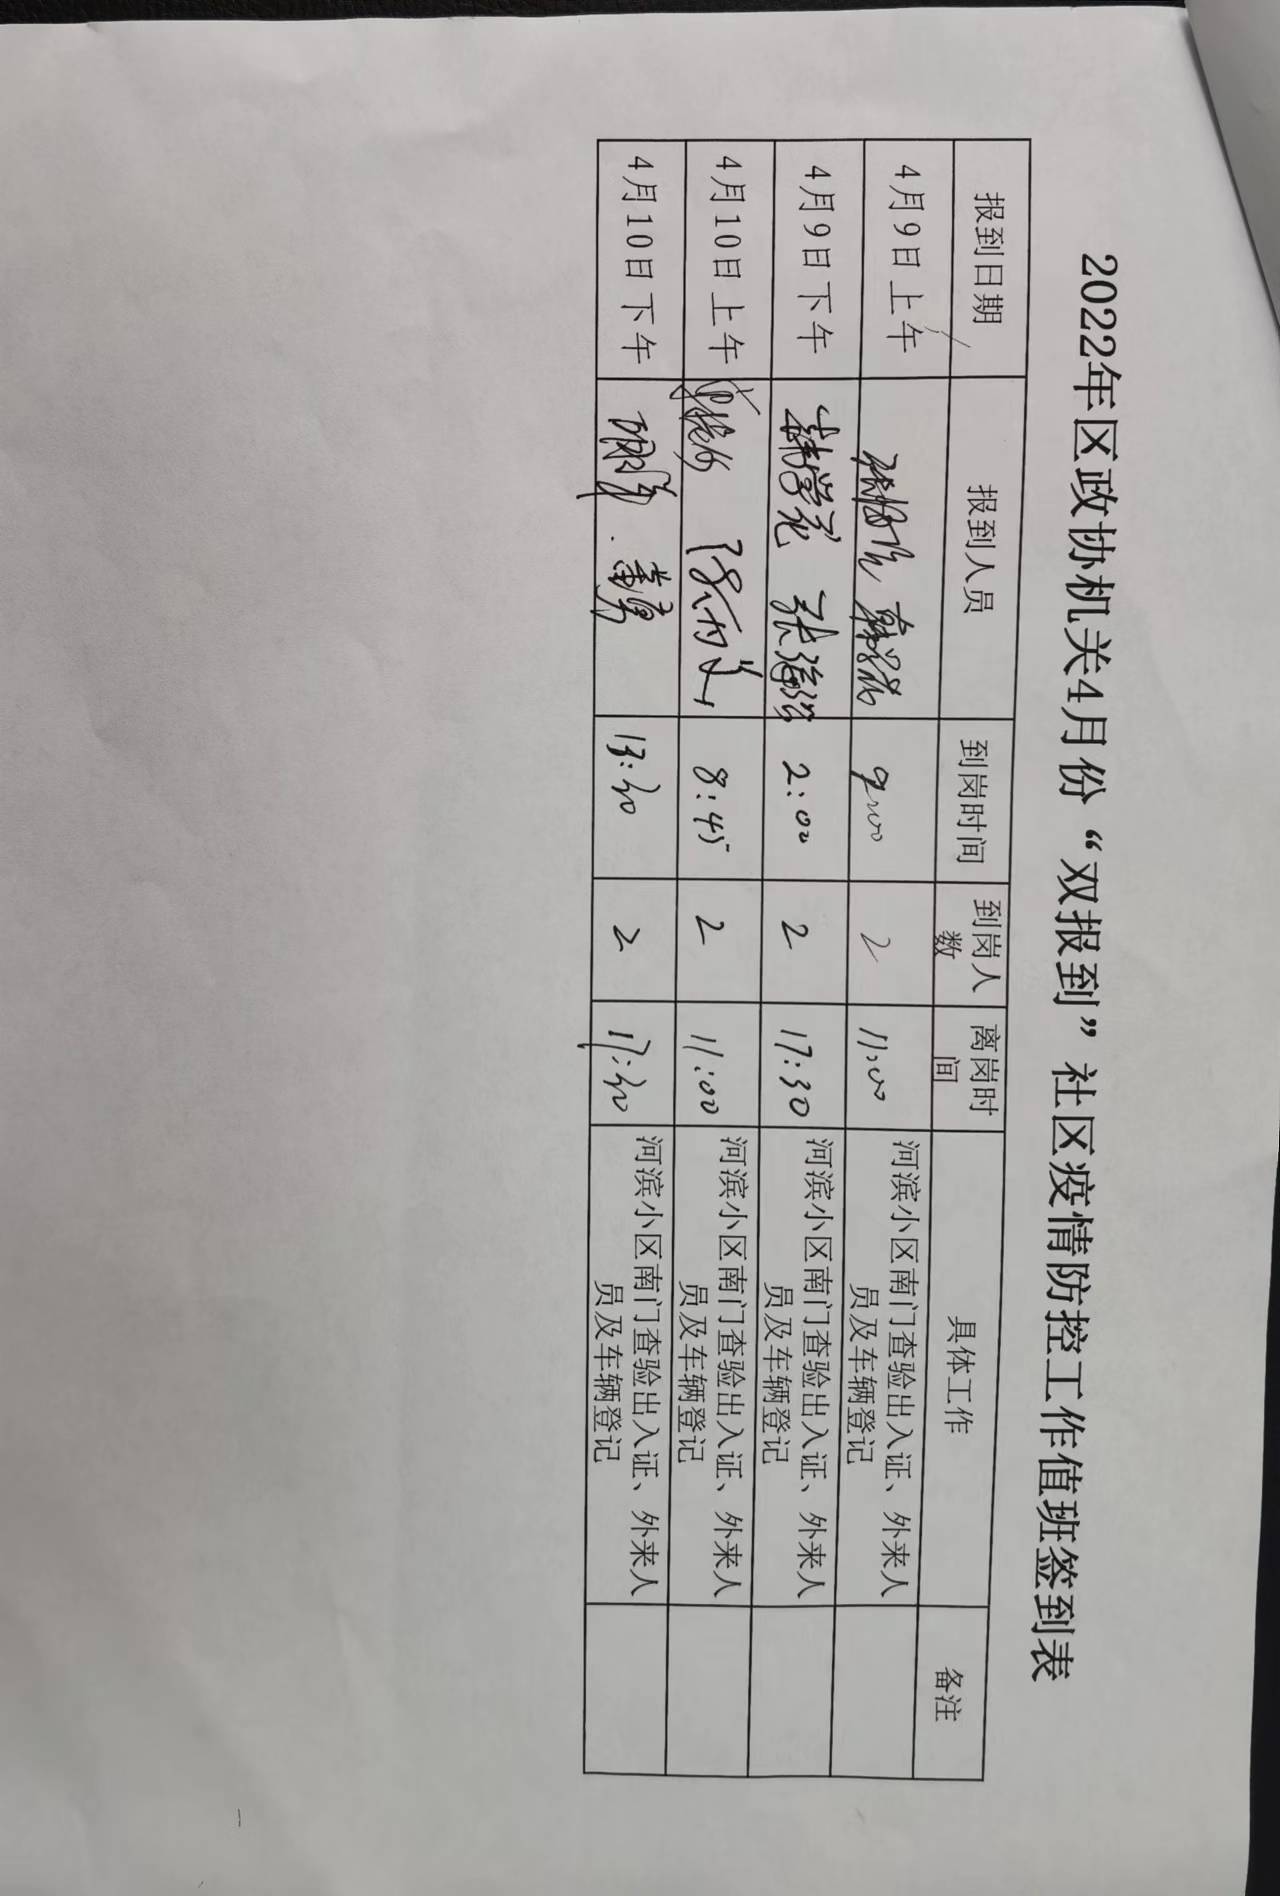 2022年区政协机关4月份“双报到”社区疫情防控工作值班签到表
报到日期 报到人员 到岗时间 到岗人数 离岗时间 具体工作 备注
4月9日上午 9:00 2 11:00 河滨小区南门查验出入证、外来人
员及车辆登记
4月9日下午 2:00 2 17:30 河滨小区南门查验出入证、外来人
员及车辆登记
4月10日上午 8:45 2 11:00 河滨小区南门查验出入证、外来人
员及车辆登记
4月10日下午 13:30 2 17:30 河滨小区南门查验出入证、外来人
员及车辆登记